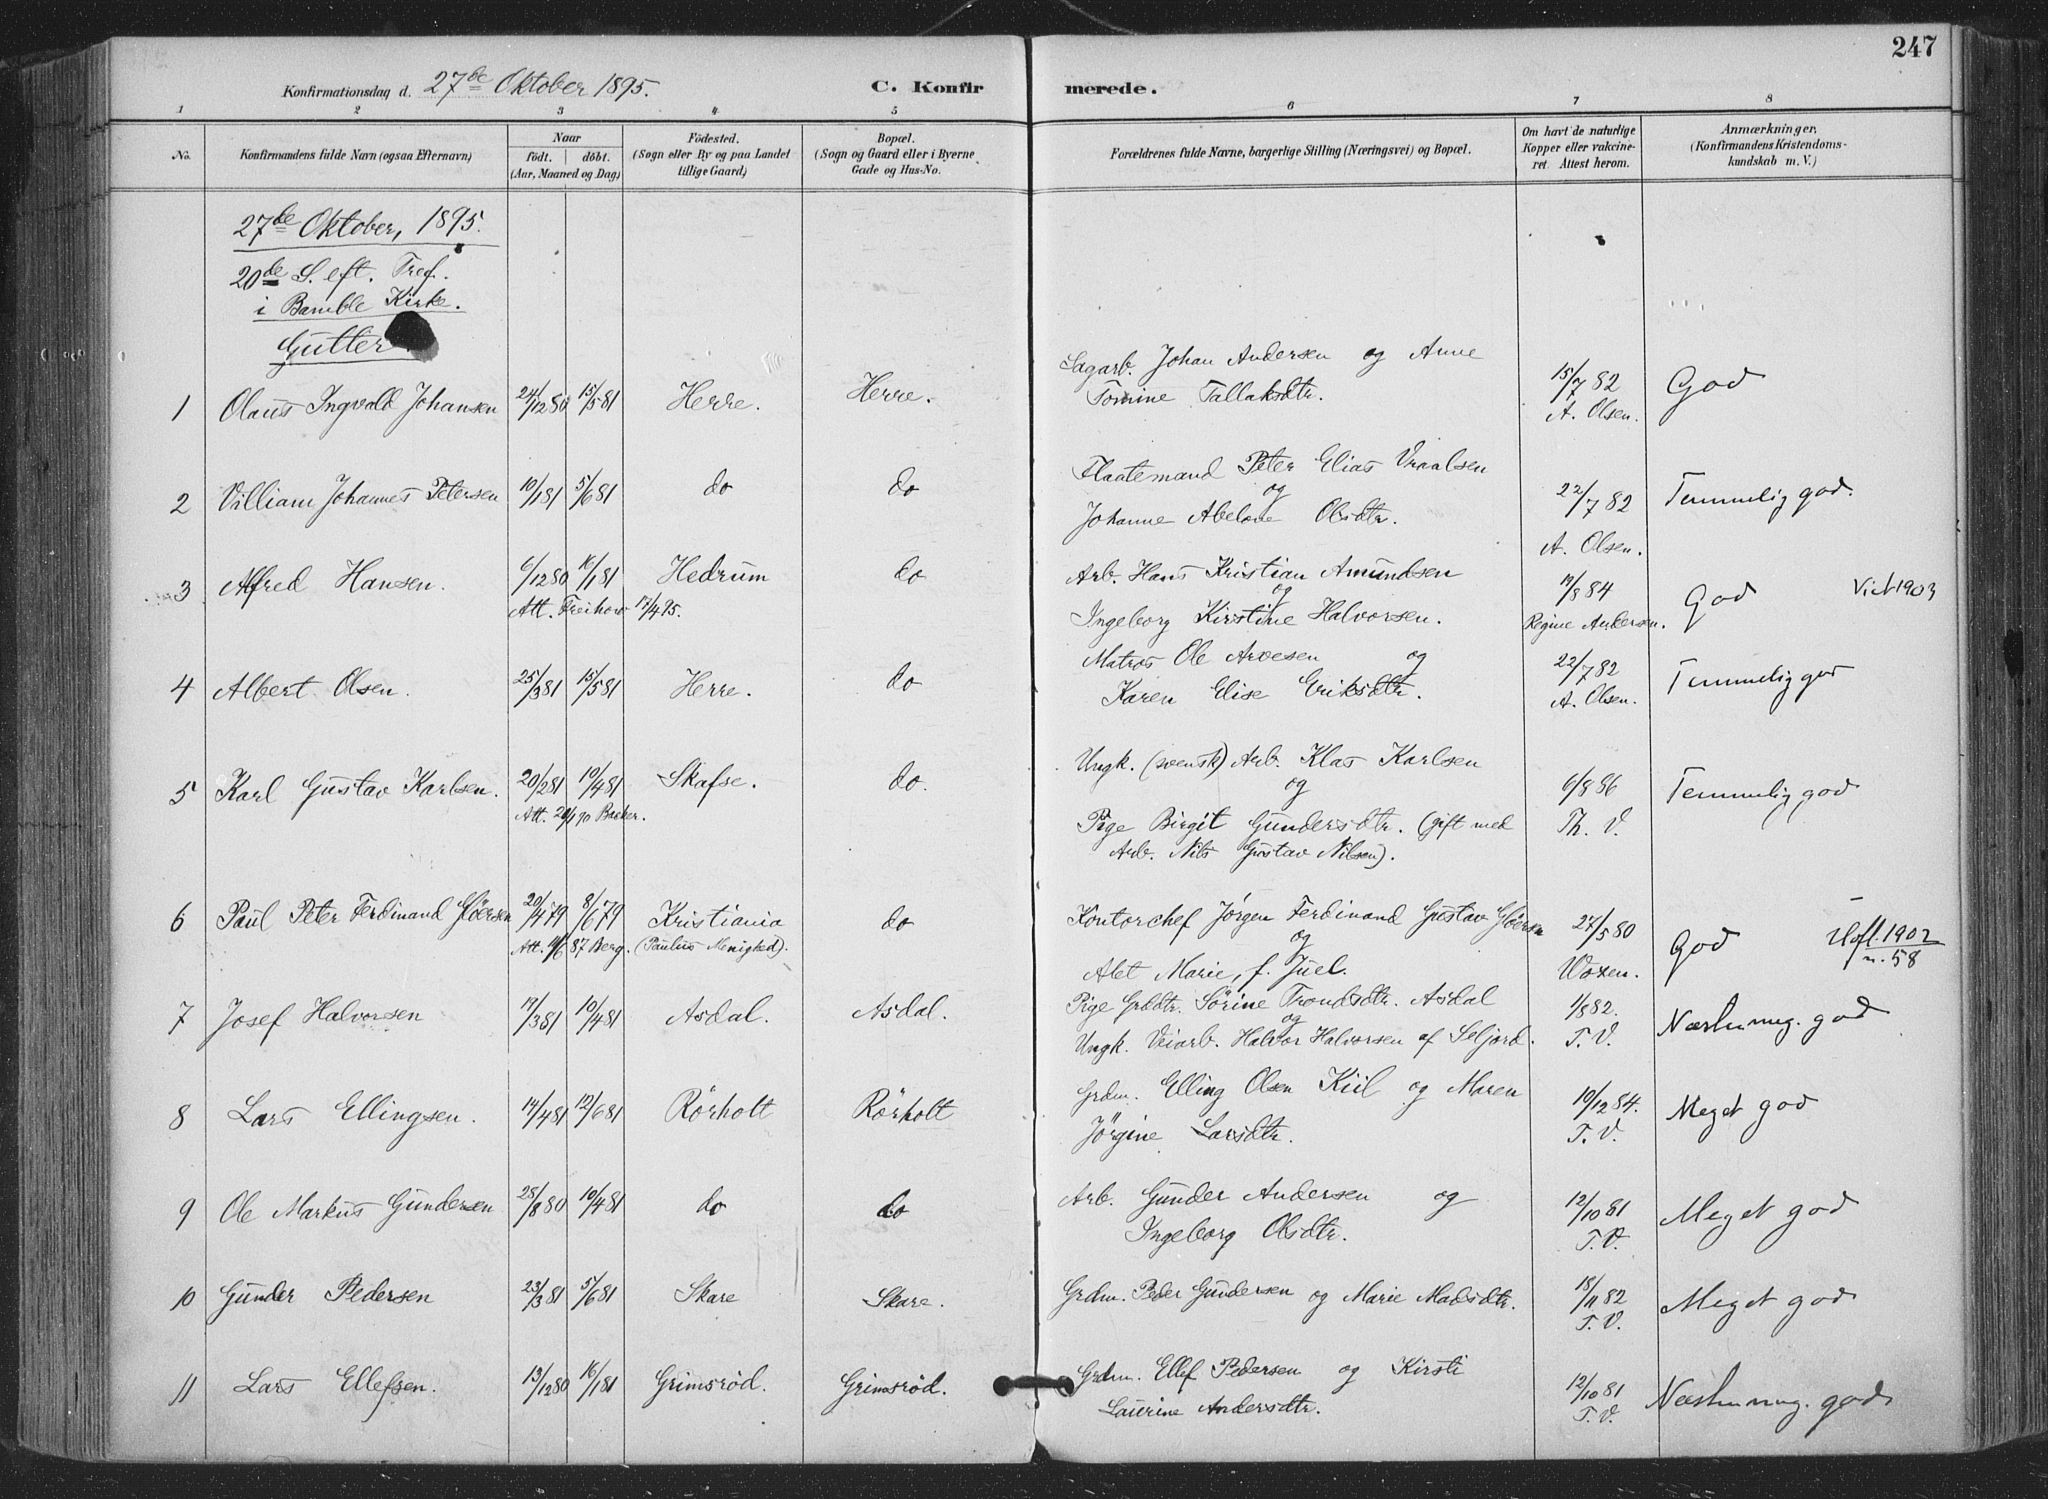 247
Konfirmationsdag d. 27de Oktober 1895. C. Konfirmerede.
1 2 3 4 5 6 7 8
No. Konfirmandens fulde Navn (ogsaa Efternavn) Naar födt. döbt. (Aar, Maaned og Dag) Födested. (Sogn eller By og paa Landet tillige Gaard) Bopæl. (Sogn og Gaard eller i Byerne Gade og Hus-No. Forældrenes fulde Navne, borgerlige Stilling (Næringsvei) og Bopæl. Om havt de naturlige Kopper eller vakcineret. Attest herom. Anmærkninger. (Konfirmandens Kristendomskundskab m. V.)
27de Oktober, 1895.
20de S. eft. Tref.
i Bamble Kirke.
Gutter
1 Olaus Ingvald Johansen 24/12 80 15/5 81 Herre. Herre. Sagarb. Johan Andersen og Anne
Tomine Tallaksdtr. 15/7 82 A. Olsen. God
2 Villiam Johannes Petersen 10/1 81 5/6 81 do do Flaatemand Peter Elias Vraalsen
og
Johanne Abelone Olsdtr. 22/7 82 A. Olsen. Temmelig god.
3 Alfred Hansen. 6/12 80 16/1 81 Hedrum do Arb. Hans Kristian Amundsen
Att. Freihow 17/4 95. og
Ingeborg Kirstine Halvorsen. 19/8 84 Regine Andersen. God Vid 1903
4 Albert Olsen. 25/3 81 15/5 81 Herre. do Matros Ole Arvesen og
Karen Elise Eriksdtr. 22/7 82 A. Olsen. Temmelig god
5 Karl Gustav Karlsen. 20/2 81 10/4 81 Skafse. do. Ungk. (svensk) Arb. Klas Karlsen
og
Pige Birgit Gundersdtr. (gift med
Arb. Nils Gustav Nilsen). 6/8 86 Th. V. Temmelig god
6 Paul Peter Ferdinand Gløersen 20/4 79 8/6 79 Kristiania do Kontorchef Jørgen Ferdinand Gustav Gløersen
(Paulus Menighed). og
Alet Marie, f. Juel. 27/5 80 God Udfl. 1902
n. 58
7 Josef Halvorsen 19/3 81 10/4 81 Asdal. Asdal. Pige Grdtr. Sörine Trondsdtr. Asdal
og
Ungk. Veiarb. Halvor Halvorsen af Seljord. 1/8 82. T. V. god
8 Lars Ellingsen. 14/4 81 12/6 81 Rörholt Rörholt Grdm. Elling Olsen Kiil og Maren
Jörgine Larsdtr. 10/12 84. T. V. Meget god
9 Ole Markus Gundersen 28/8 80 10/4 81 do do Arb. Gunder Andersen og
Ingeborg Olsdtr. 12/10 81 T. V. Meget god
10 Gunder Pedersen 23/3 81 5/6 81 Skare Skare. Grdm. Peder Gundersen og Marie Madsdtr. 18/11 82 T. V. Meget god
11 Lars Ellefsen. 13/12 80 16/1 81 Grimsröd. Grimsröd. Grdm. Ellef Pedersen og Kirsti
Laurine Andersdtr. 12/10 81 T. V. god